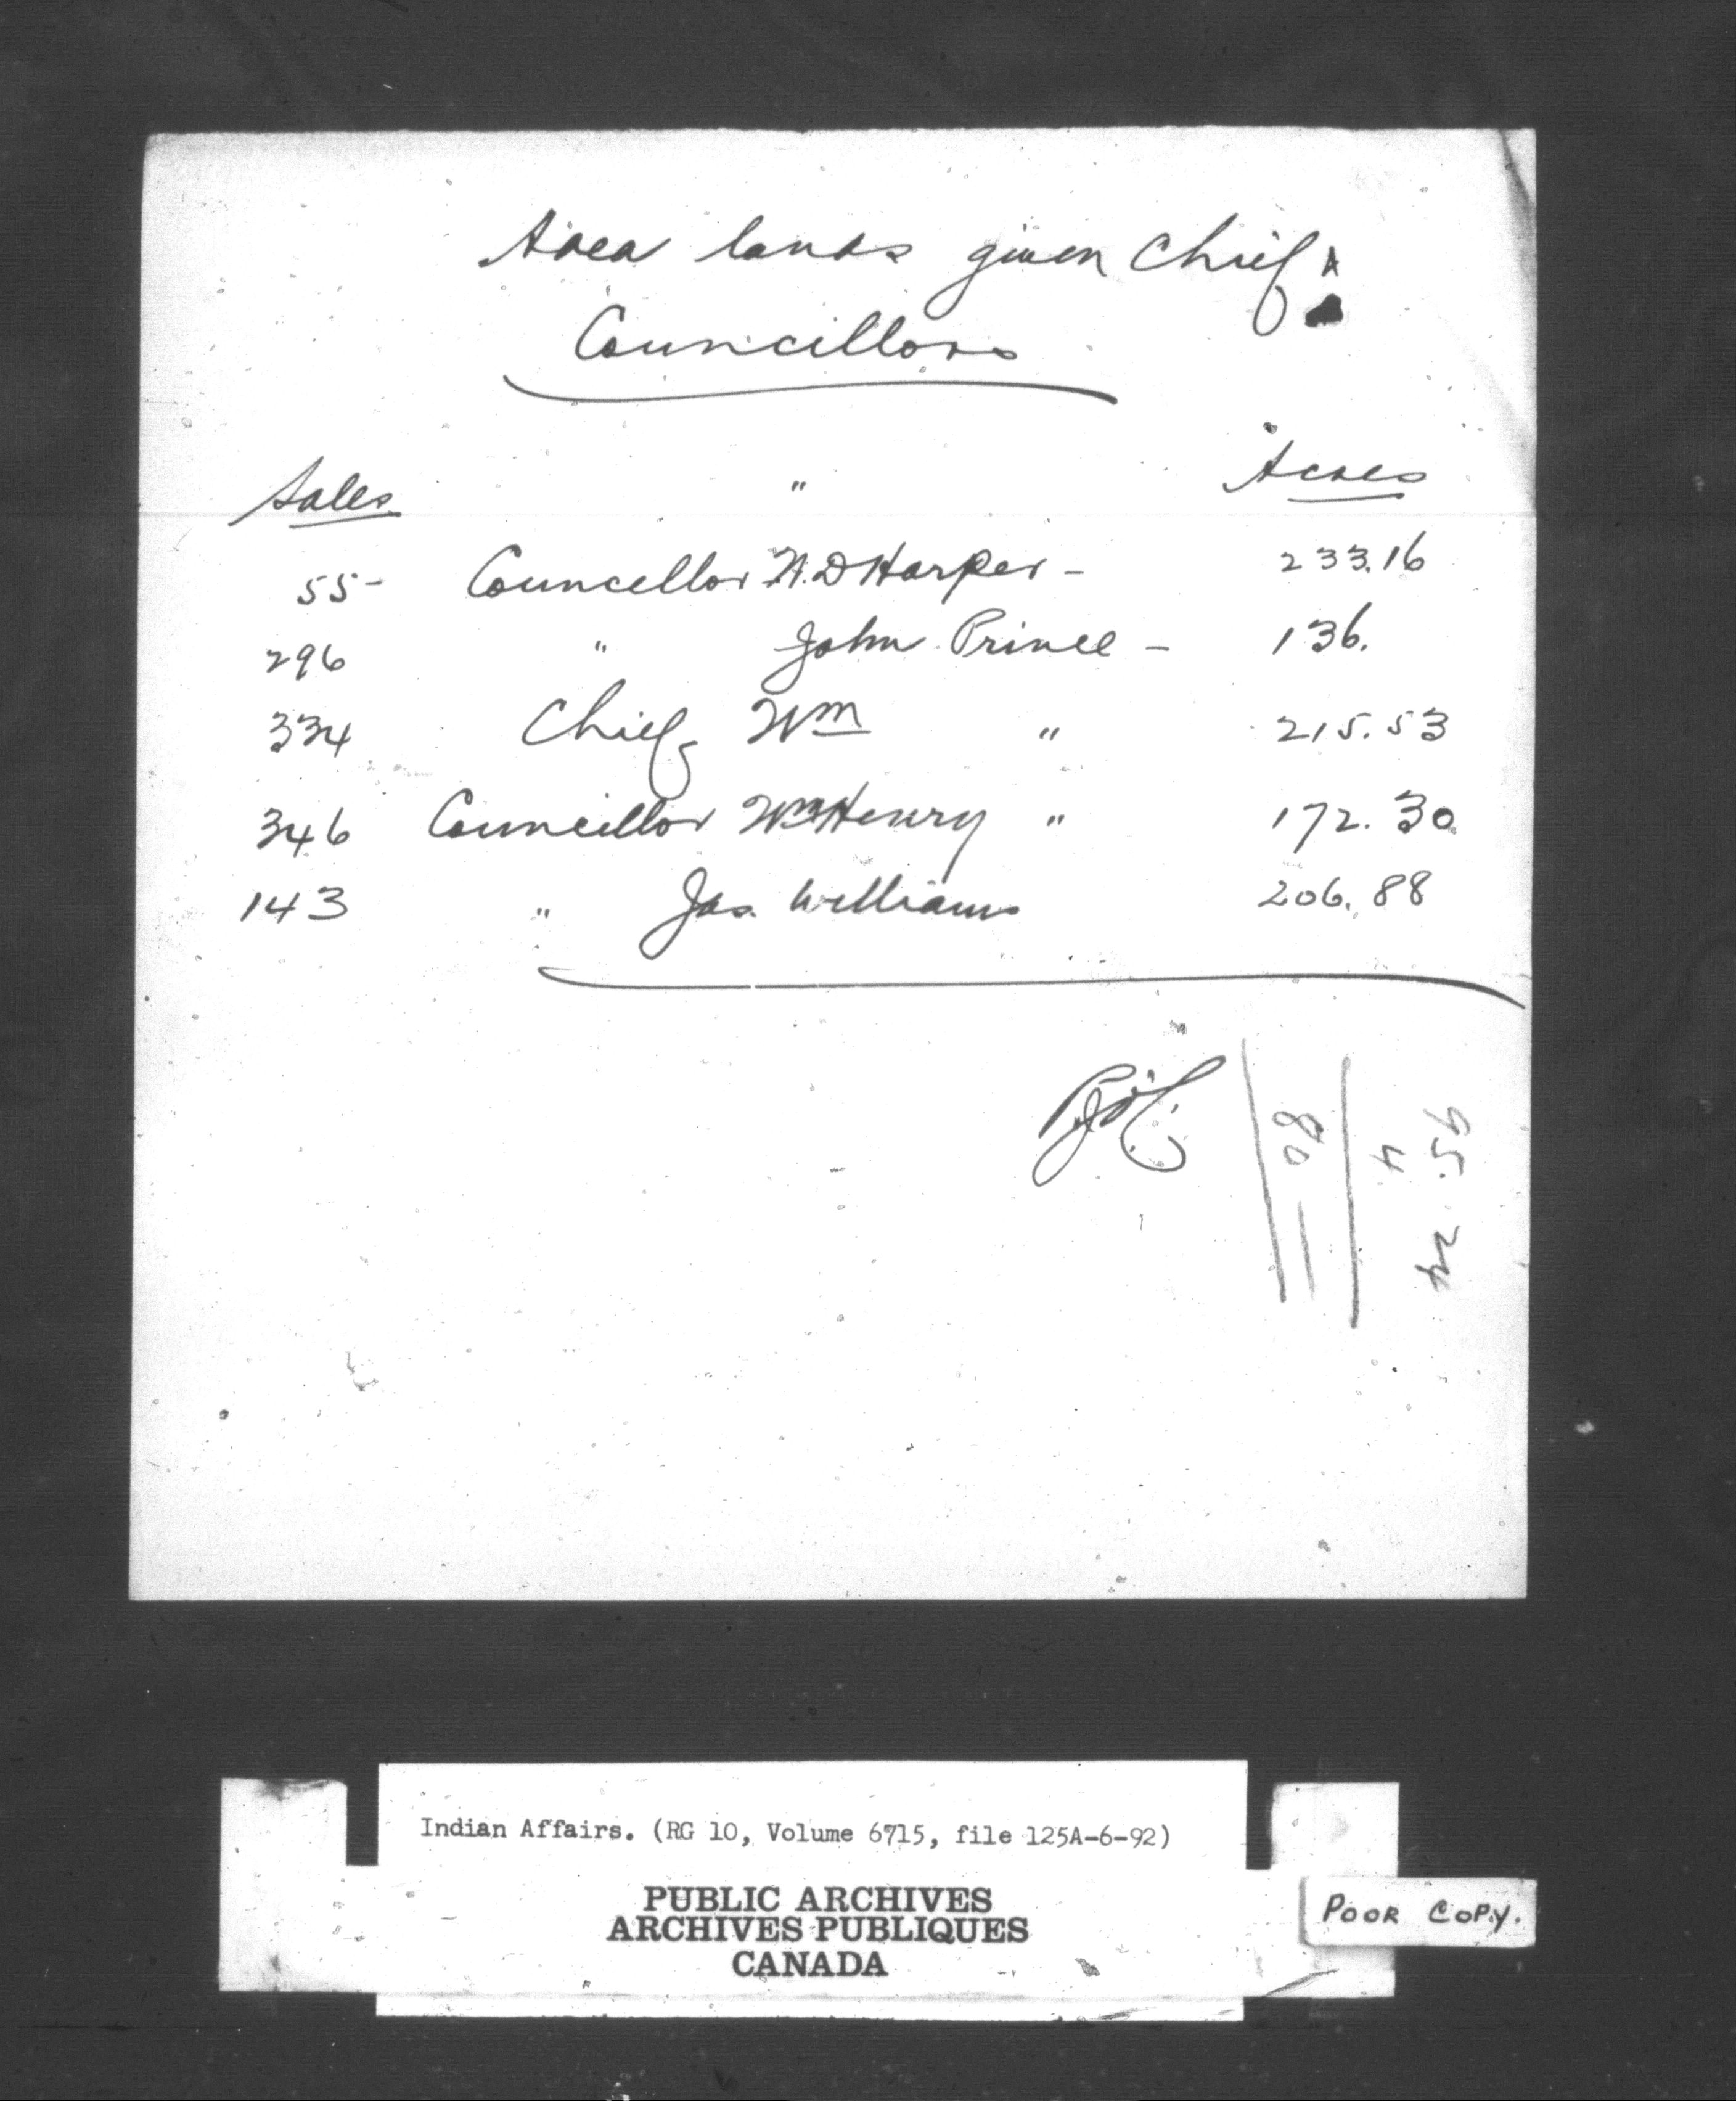 Area lands given Chief &
Councillors
Sales " Acres
55- Councellor W.D Harper - 233.16
296 " John Prince - 136.
334 Chief Wm " 215.53
346 Councillor Wm Henry " 172.30
143 " Jas. Williams 206.88
95.24
4
80
Indian Affairs. (RG 10, Volume 6715, file 125A-6-92)
PUBLIC ARCHIVES
ARCHIVES PUBLIQUES
CANADA
POOR COPY.